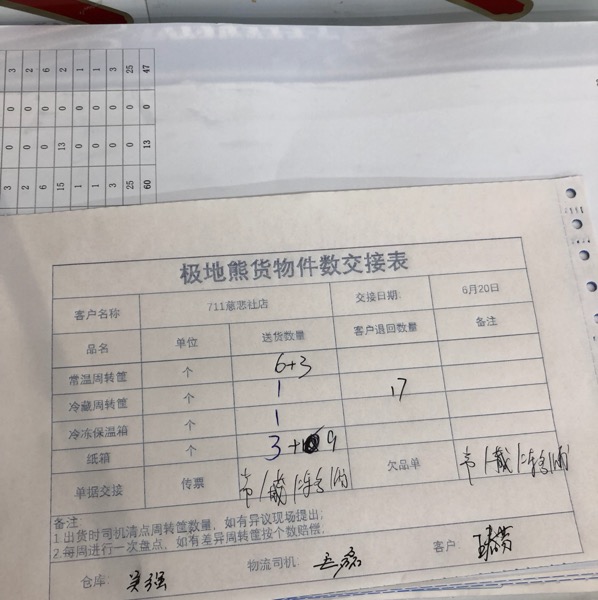 3 2 6 2 1 1 3 25 47
0 0 0 0 0 0 0 0 0
0 0 0 13 0 0 0 0 13
3 2 6 15 1 1 3 25 60
极地熊货物件数交接表
客户名称 711慈悲社店 交接日期: 6月20日
品名 单位 送货数量 客户退回数量 备注
常温周转筐 个 6+3
冷藏周转筐 个 1 17
冷冻保温箱 个 1
纸箱 个 3+ 9
单据交接 传票 常1 欠品单 常1
备注:
1.出货时司机清点周转筐数量,如有异议现场提出;
2.每周进行一次盘点,如有差异周转筐按个数赔偿.
仓库: 吴强 物流司机 客户